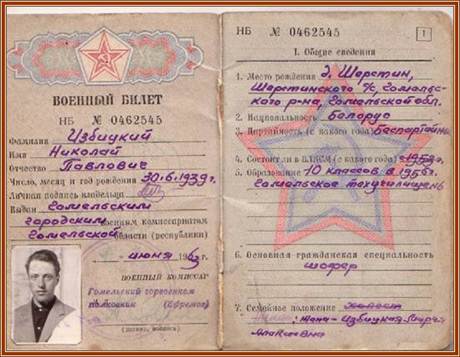 ВОЕННЫЙ БИЛЕТ
НБ № 0462545
Фамилия Избицкий
Имя Николай
Отчество Павлович
Число, месяц и год рождения 30.6.1939г.
Личная подпись владельца
Выдан Гомельским
городским военным комиссариатом
Гомельской области (республики)
июня 1963 г.
ВОЕННЫЙ КОМИССАР
Гомельский горвоенком
(Ефремов)
(звание, подпись)
НБ № 0462545
1
I. Общие сведения
1. Место рождения д. Шерстин,
Шерстинского с/с, Гомельс-
кого р-на, Гомельской обл.
2. Национальность Белорус
3. Партийность (с какого года) беспартийный
4. Состоит ли в ВЛКСМ (с какого года)
5. Образование 10 классов в 1956г.
Гомельское
6. Основная гражданская специальность
шофер
7. Семейное положение холост
жена - Избицкая Мария